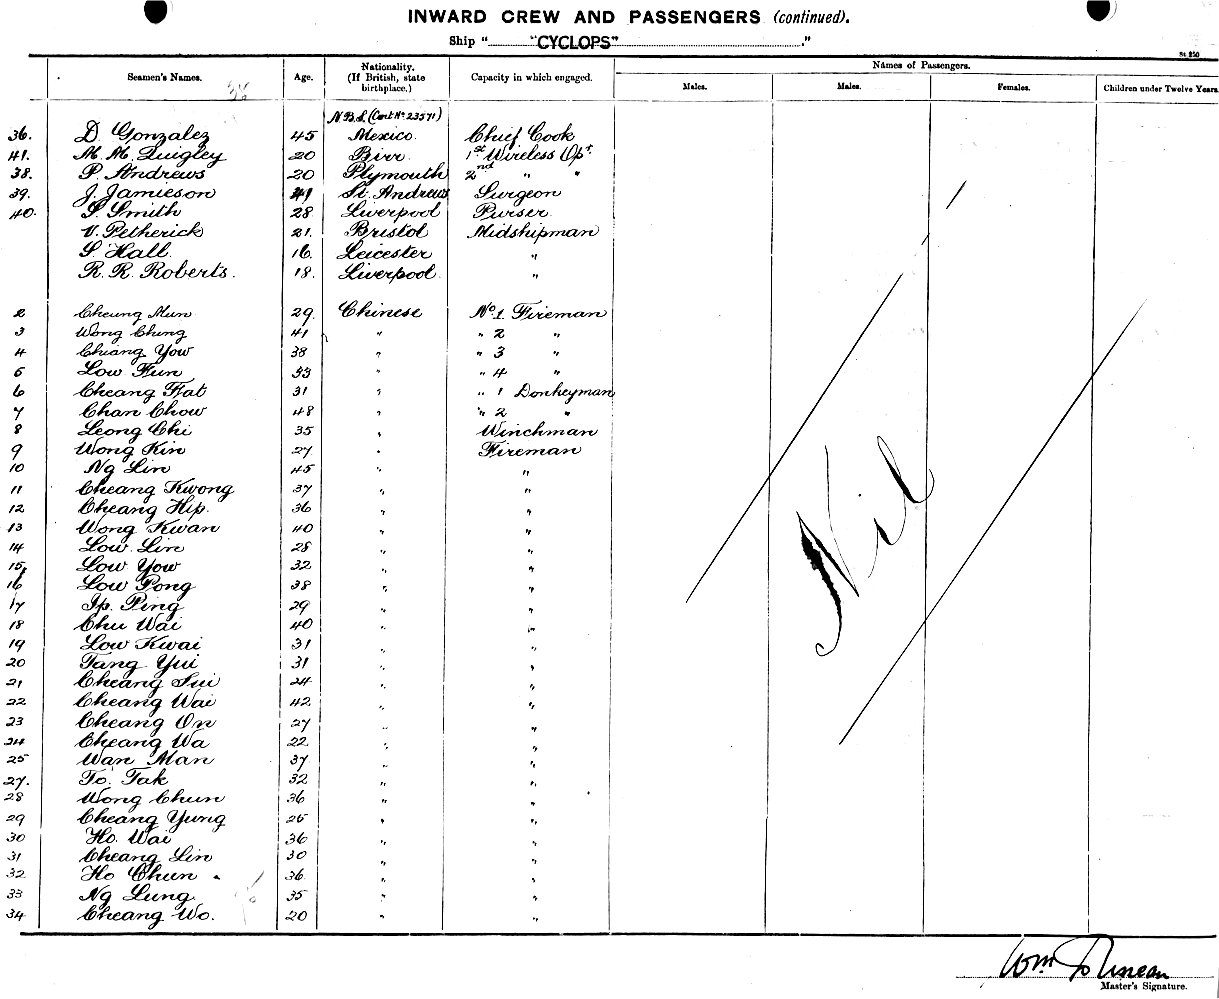 INWARD CREW AND PASSENGERS (continued).
Ship "CYCLOPS"
St. 250
Seamen's Names. Age. Nationality. (If British, state birthplace.) Capacity in which engaged. Names of Passengers.
Males. Males. Females. Children under Twelve Years.
38
N.B.S. (Cert No 23571)
36. D. Gonzalez 45 Mexico. Chief Cook
41. M. M. Quigley 20 Birr. 1st Wireless Opr.
38. P. Andrews 20 Plymouth 2nd " "
39. J. Jamieson 41 St. Andrews Surgeon
40. S. Smith 28. Liverpool Purser.
V. Petherick 21. Bristol Midshipman
S. Hall. 16. Leicester "
R. R. Roberts. 18. Liverpool. "
2 Cheung Mun 29. Chinese No. 1. Fireman
3 Wong Chung 41 " " 2 "
4 Chiang Yow 38 " " 3 "
5 Low Fun 33 " " 4 "
6 Cheang Fat 31 " " 1 Donkeyman
7 Chan Chow 48 " " 2 "
8 Leong Chi 35 " Winchman
9 Wong Kin 27 " Fireman
10 Ng Lin 45 " "
11 Cheang Kwong 37 " "
12 Cheang Hip. 36 " "
13 Wong Kwan 40 " "
14 Low Lin 28 " "
15 Low Yow 32 " "
16 Low Pong 38 " "
17 Ip. Ping 29 " "
18 Chu Wai 40 " "
19 Low Kwai 31 " "
20 Tang Yui 31 " "
21 Cheang Sui 24 " "
22 Cheang Wai 42 " "
23 Cheang On 27 " "
24 Cheang Wa 22 " "
25 Wan Man 37 " "
27. To. Tak 32 " "
28 Wong Chun 36 " "
29 Cheang Yung 25 " "
30 Ho. Wai 36 " "
31 Cheang Lin 30 " "
32 Ho Chun 36. " "
33 Ng Lung. 35 " "
34 Cheang Wo. 20 " "
Nil
Wm
Master's Signature.